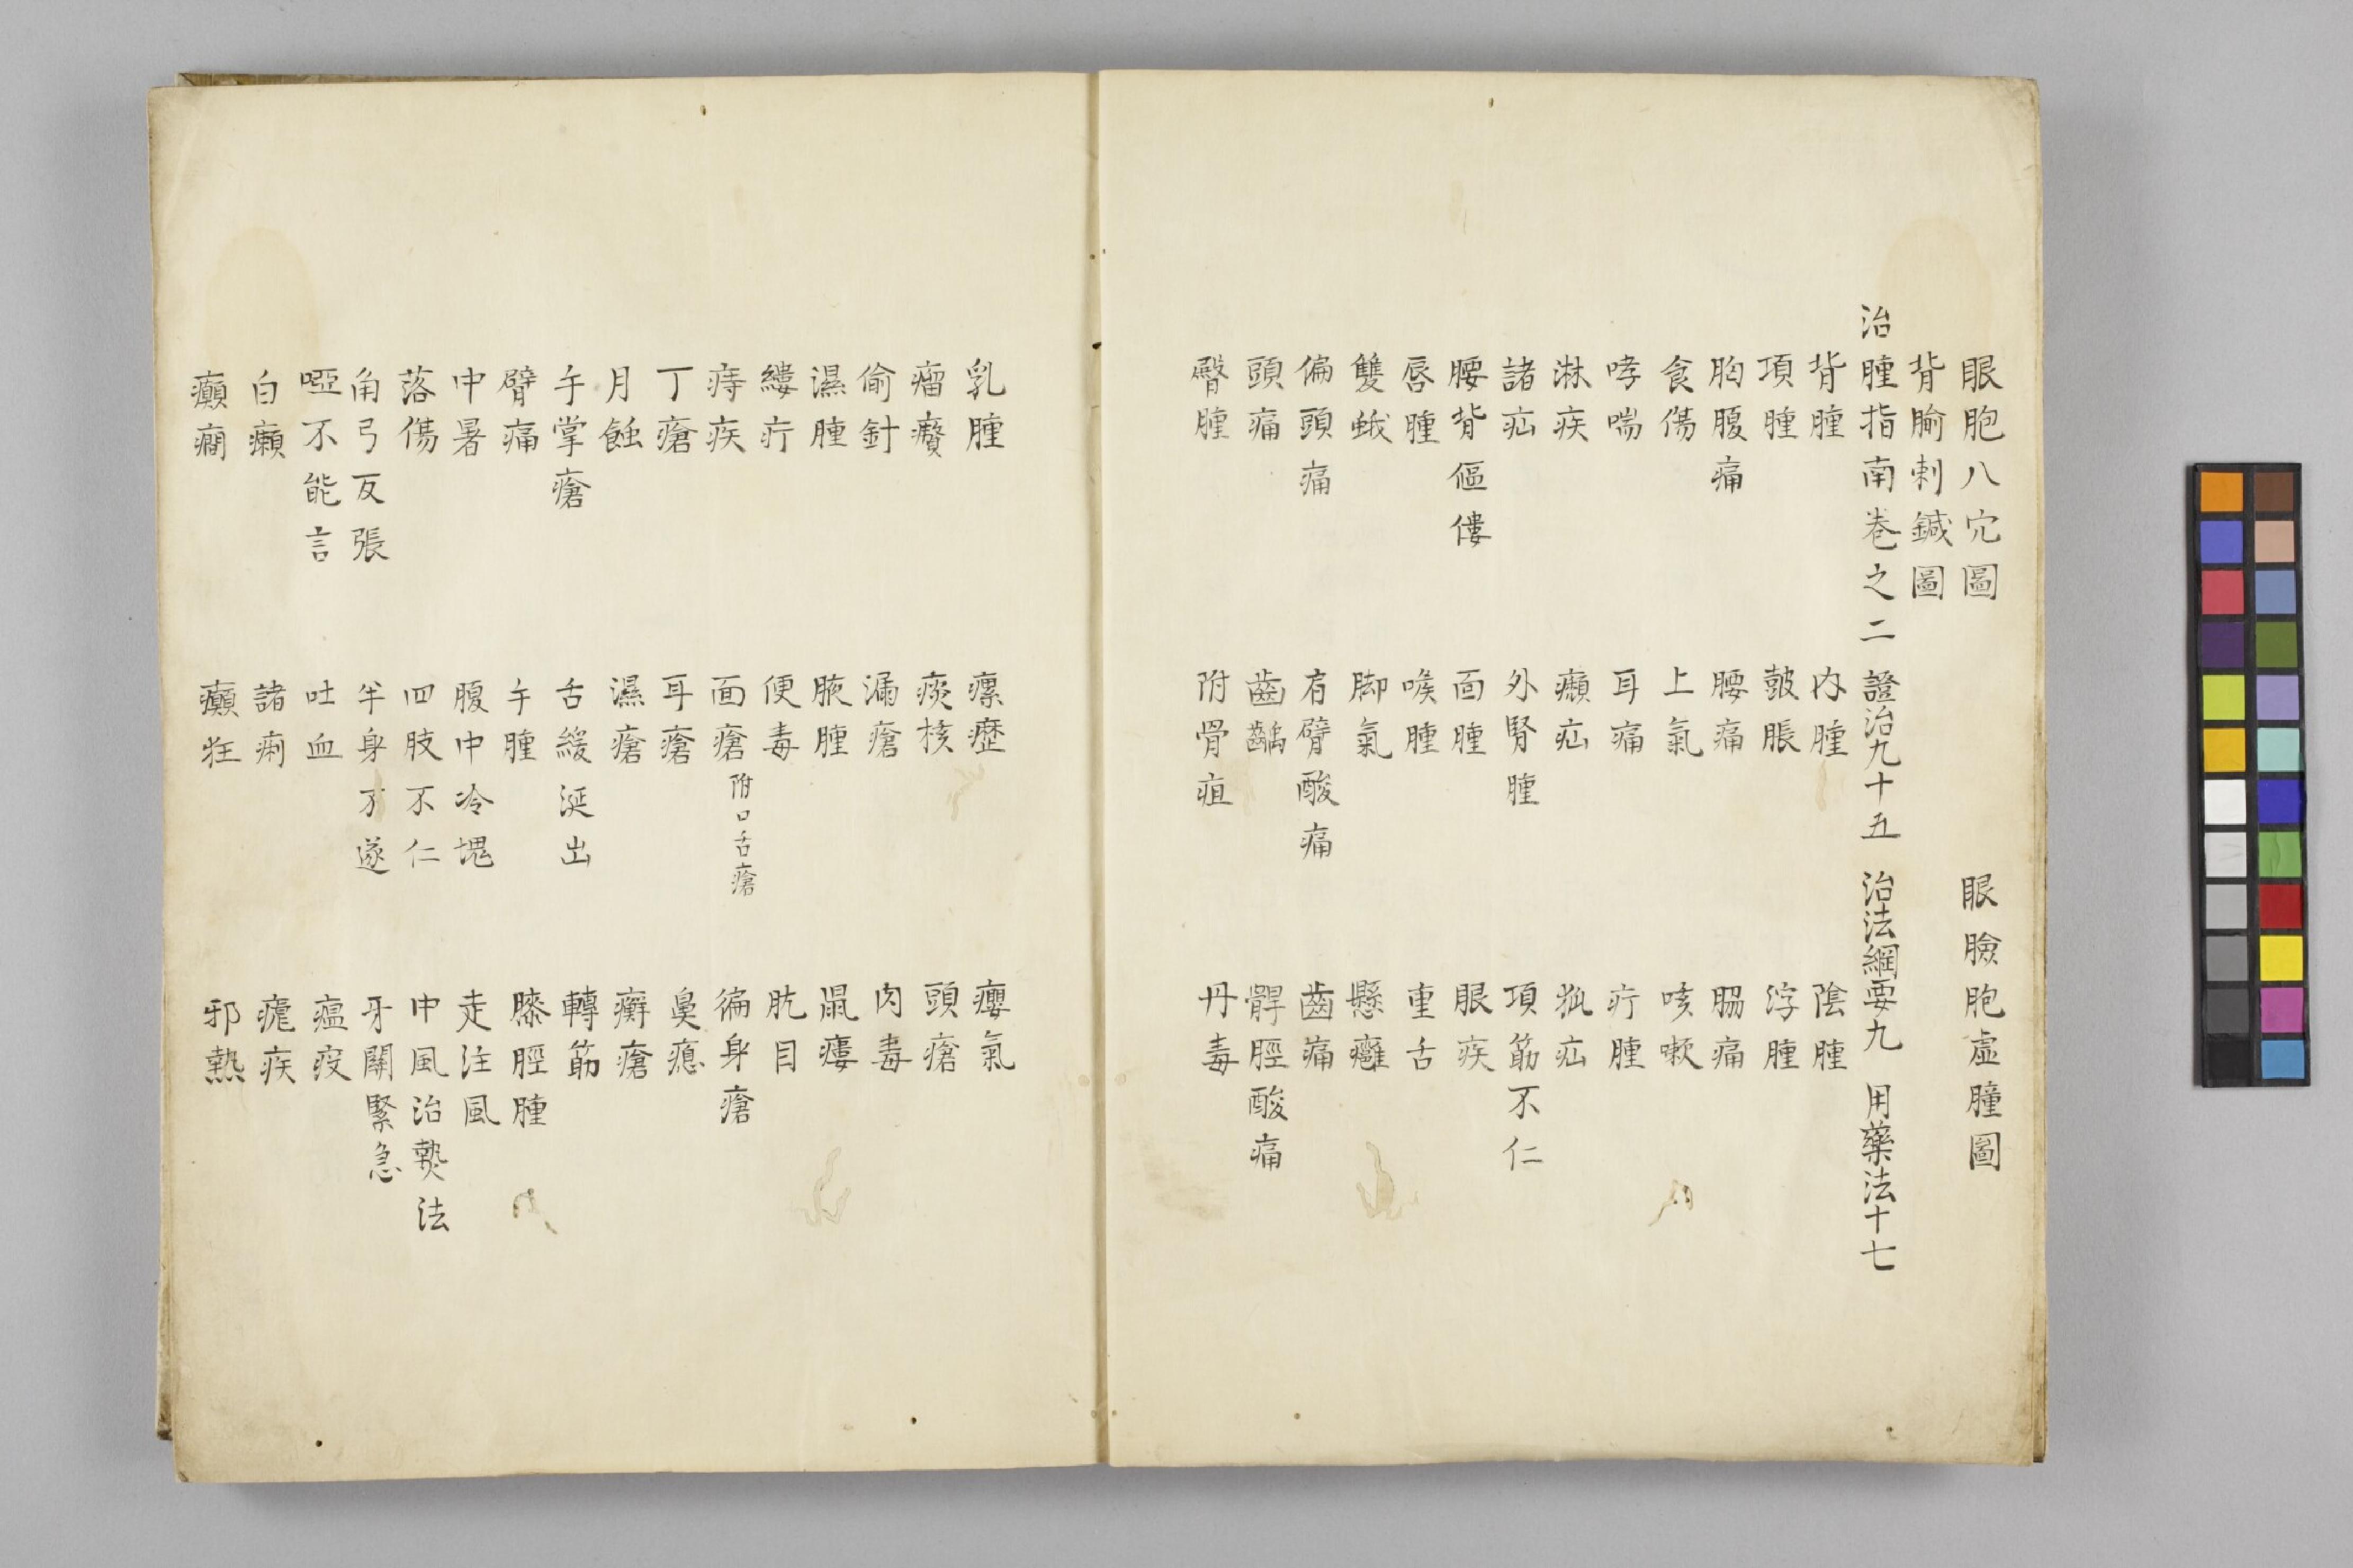 眼胞八穴圖　眼臉胞虛腫圖
背腧刺鍼圖
治腫指南卷之二　證治九十五　治法綱要九　用藥法十七
背腫　內腫　陰腫
項腫　皷脹　浮腫
胸腹痛　腰痛　脇痛
食傷　上氣　咳嗽
哮喘　耳痛　疔腫
淋疾　癩疝　狐疝
諸疝　外腎腫　項筋不仁
腰背傴僂　面腫　眼疾
唇腫　喉腫　重舌
雙蛾　脚氣　懸癰
偏頭痛　肩臂酸痛　齒痛
頭痛　齒齲　髀脛酸痛
臀腫　附骨疽　丹毒
乳腫　瘰癧　癭氣
瘤癈　痰核　頭瘡
偷針　漏瘡　肉毒
濕腫　腋腫　鼠瘻
縷疔　便毒　肬目
痔疾　面瘡附口舌瘡　徧身瘡
丁瘡　耳瘡　臭瘜
月蝕　濕瘡　癬瘡
手掌瘡　舌緩涎出　轉筋
臂痛　手腫　膝脛腫
中暑　腹中冷塊　走注風
落傷　四肢不仁　中風治爇法
角弓反張　半身不遂　牙關緊急
啞不能言　吐血　瘟疫
白癩　諸痢　瘧疾
癲癇　癲狂　邪熱